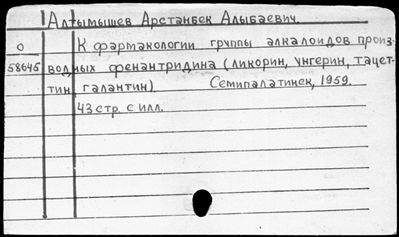 Алтымышев Арстанбек Алыбаевич.
О К фармакологии группы алкалоидов произ-
58645 водных фенантридина (ликорин, унгерин, тацет-
тин, галантин) Семипалатинск, 1959.
43 стр. с илл.